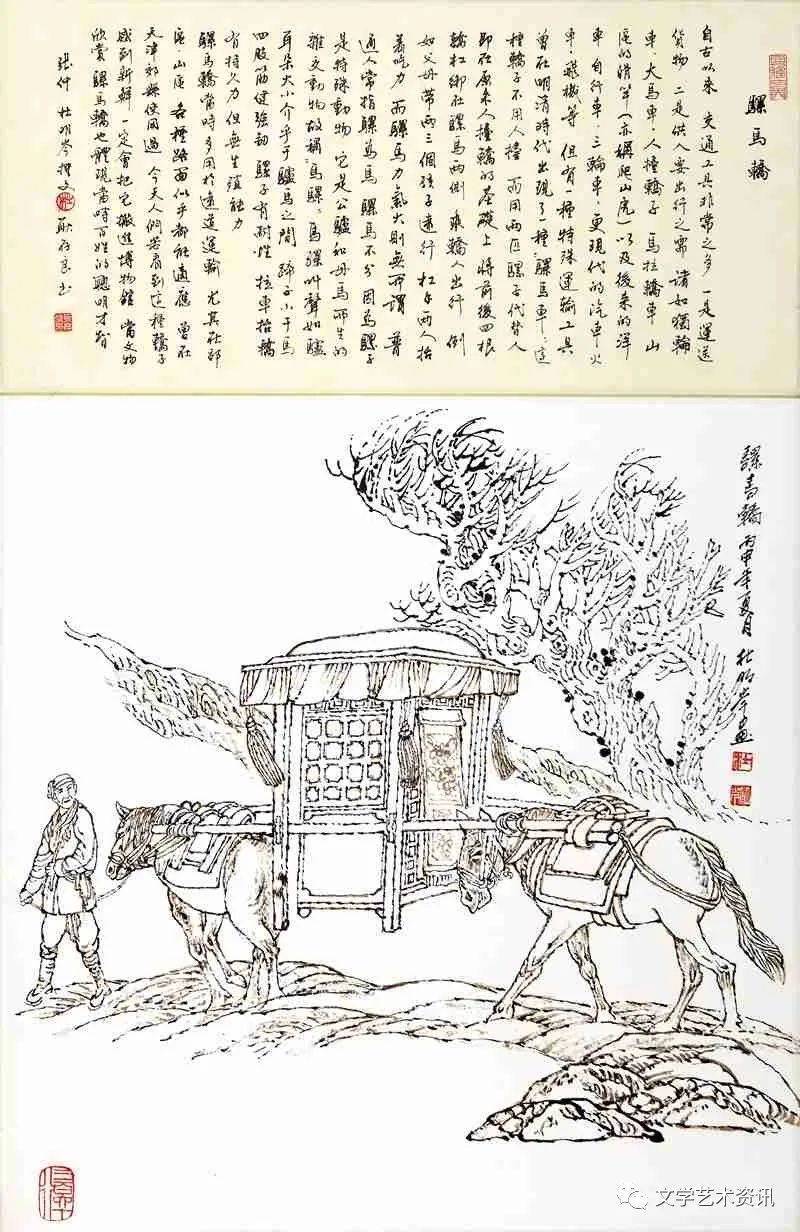 騾馬轎
自古以來 交通工具非常之多 一是運送
貨物 二是供人要出行之需 諸如獨輪
車、大馬車、人擡轎子 馬拉轎車 山
區的滑竿(亦稱爬山虎)以及後來的洋
車 自行車、三輪車 更現代的汽車火
車、飛機等 但有一種特殊運輸工具
曾在明清時代出現了一種"騾馬車"這
種轎子不用人擡 而用兩匹騾子代替人
即在原來人擡轎的基礎上 將前後四根
轎杠綁在騾馬兩側 乘轎人出行 倒
如父母帶兩三個孩子遠行 杠子兩人抬
着吃力 而騾馬力氣大則無所謂 普
通人常指騾爲馬 騾馬不分 因爲騾子
是特殊動物 它是公驢和母馬所生的
雜交動物 故稱"馬騾" 馬騾叫聲如驢
耳朵大小介乎于驢馬之間 蹄子小于馬
四肢筋健強韌 騾子有耐性 拉車抬轎
有持久力 但無生殖能力
騾馬轎當時多用於遠道運輸 尤其在郊
區、山區 各種路面似乎都能適應 曾在
天津郊縣使用過 今天人們若看到這種轎子
感到新鮮 一定會把它搬進博物館 當文物
欣賞 騾馬轎也體現當時百姓的聰明才智
張仲 杜明岑撰文 耿存良書
騾馬轎 丙申年夏月 杜明岑畫
文学艺术资讯